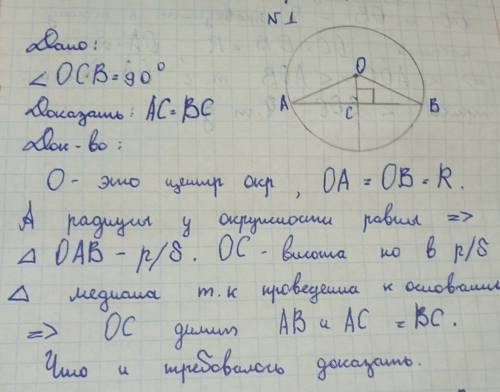 N 1
Дано:
∠ OCB = 90°
Доказать: AC = BC
Док-во:
O
A
C
B
O - это центр окр, OA = OB = R.
А радиусы у окружности равны =>
△ OAB - р/б. OC - высота но в р/б
△ медиана т.к проведена к основанию
=> OC делит AB и AC = BC.
Что и требовалось доказать.